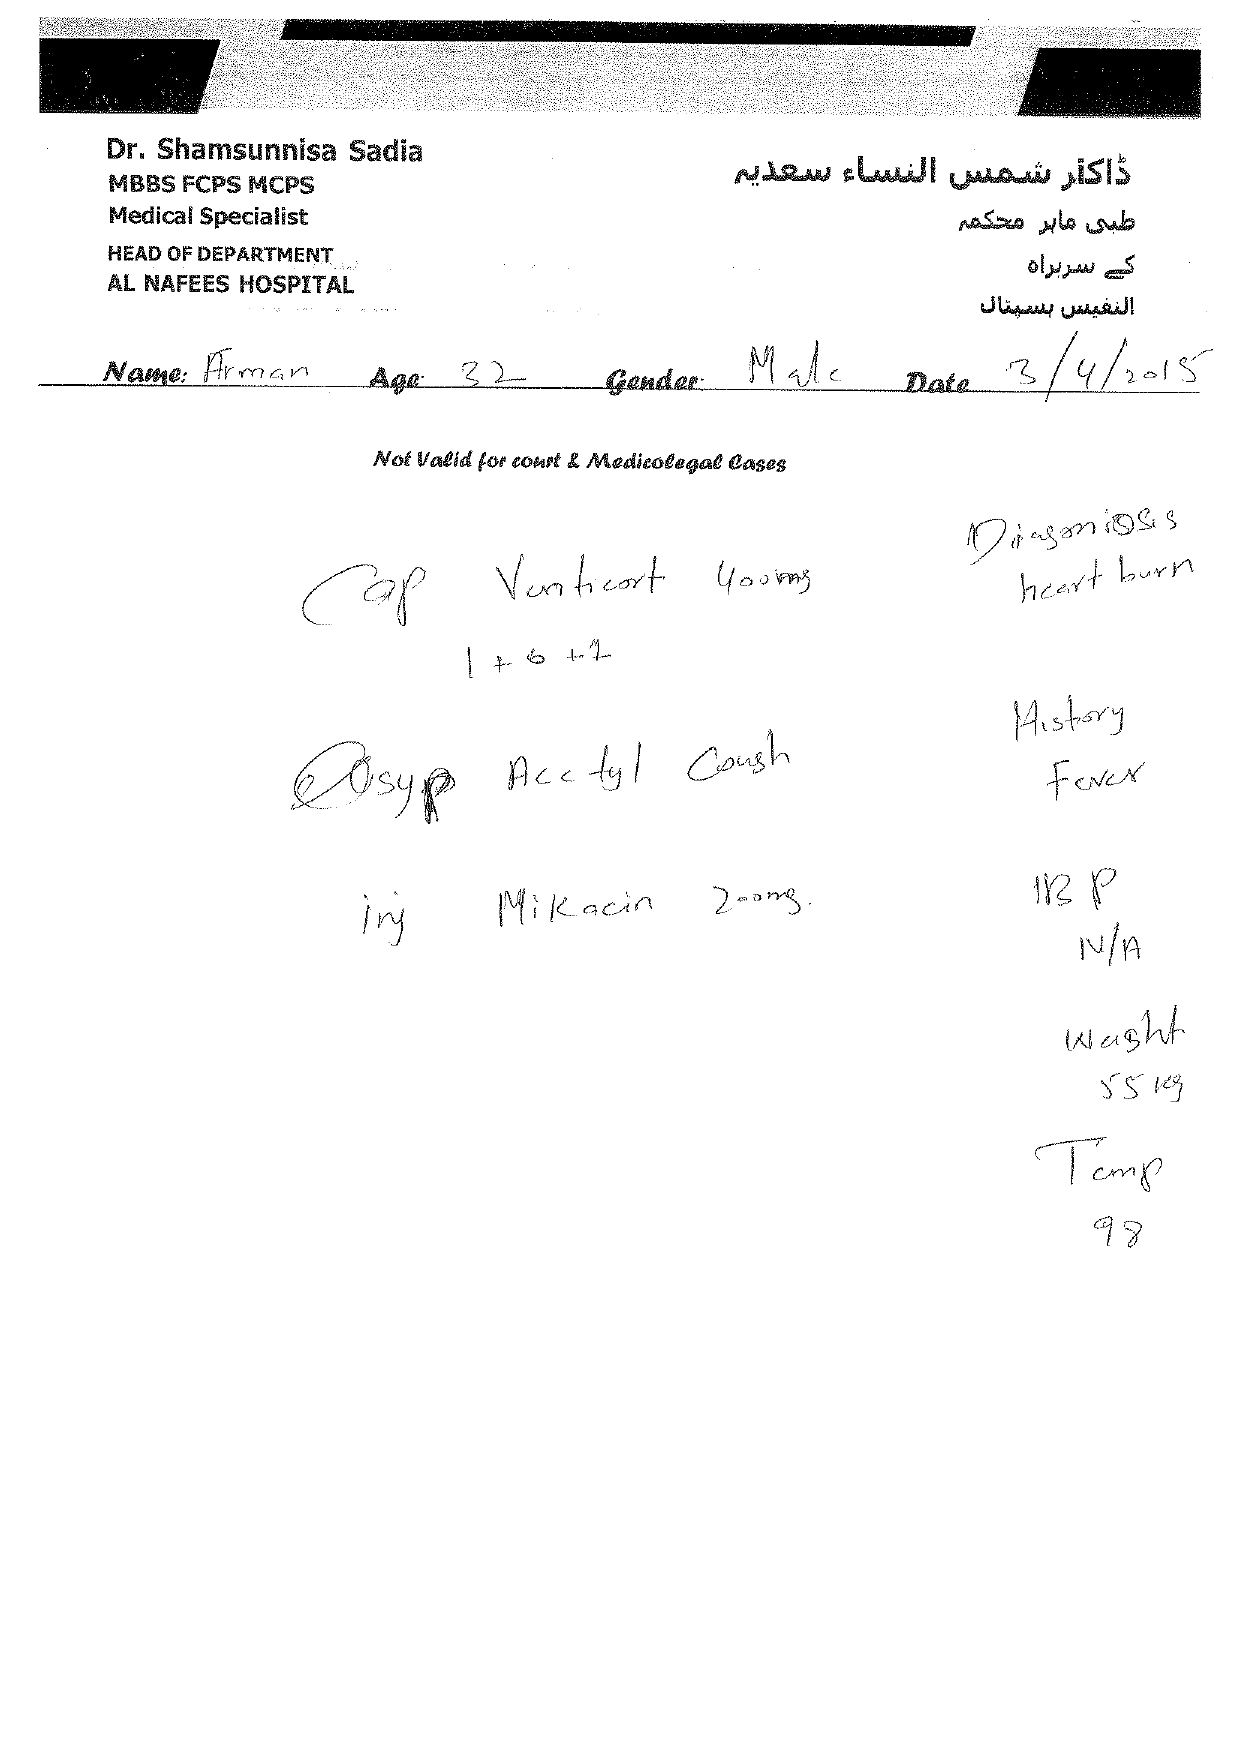 Dr. Shamsunnisa Sadia
MBBS FCPS MCPS
Medical Specialist
HEAD OF DEPARTMENT
AL NAFEES HOSPITAL
ڈاکٹر شمس النساء سعدیہ
طبی ماہر محکمہ
کے سربراہ
النفیس ہسپتال
Name: Arman Age: 32 Gender: Male Date 3/4/2015
Not Valid for court & Medicolegal Cases
Cap Venticort 400mg
1+0+1
syp Acetyl Cough
inj Mikacin 200mg.
Diagoniosis
heart burn
History
Fever
BP
N/A
Weight
55 kg
Temp
98